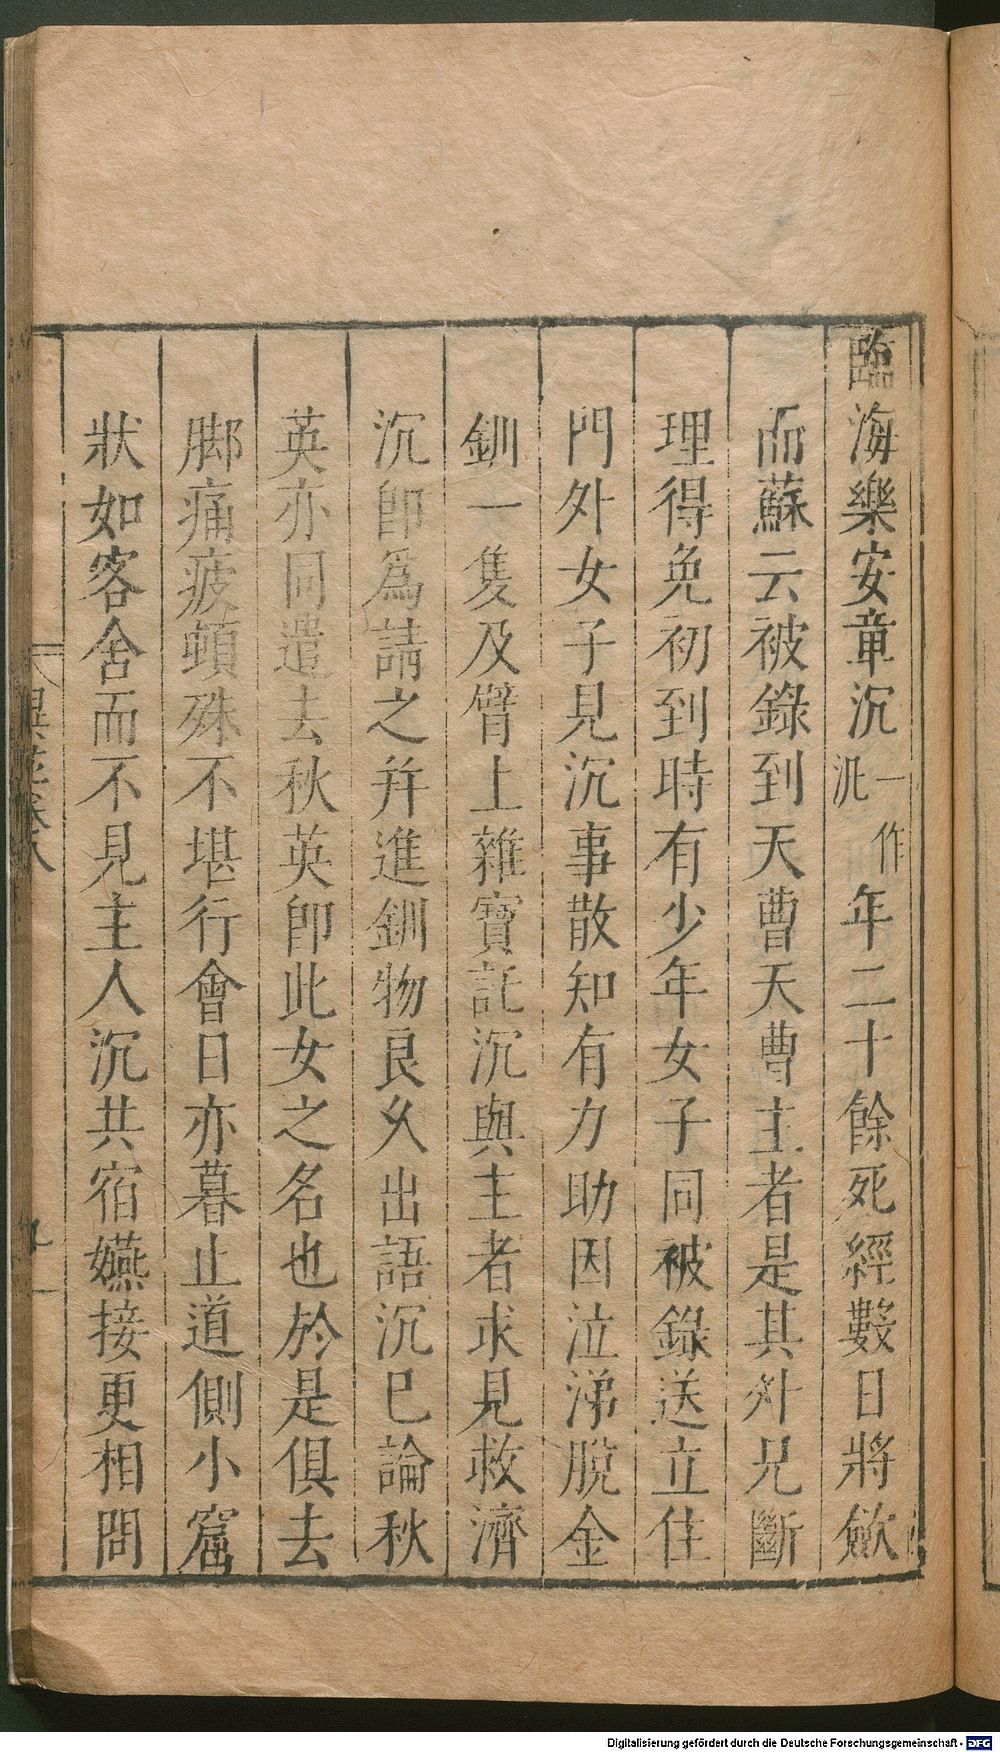 臨海樂安章沉一作泚年二十餘死經數日將斂
而蘇云被錄到天曹天曹主者是其外兄斷
理得免初到時有少年女子同被錄送立住
門外女子見沉事散知有力助因泣涕脫金
釧一隻及臂上雜寶託沉與主者求見救濟
沉卽爲請之并進釧物良久出語沉已論秋
英亦同遣去秋英卽此女之名也於是俱去
脚痛疲頓殊不堪行會日亦暮止道側小窟
狀如客舍而不見主人沉共宿嬿接更相問
異苑卷八
Digitalisierung gefördert durch die Deutsche Forschungsgemeinschaft - DFG